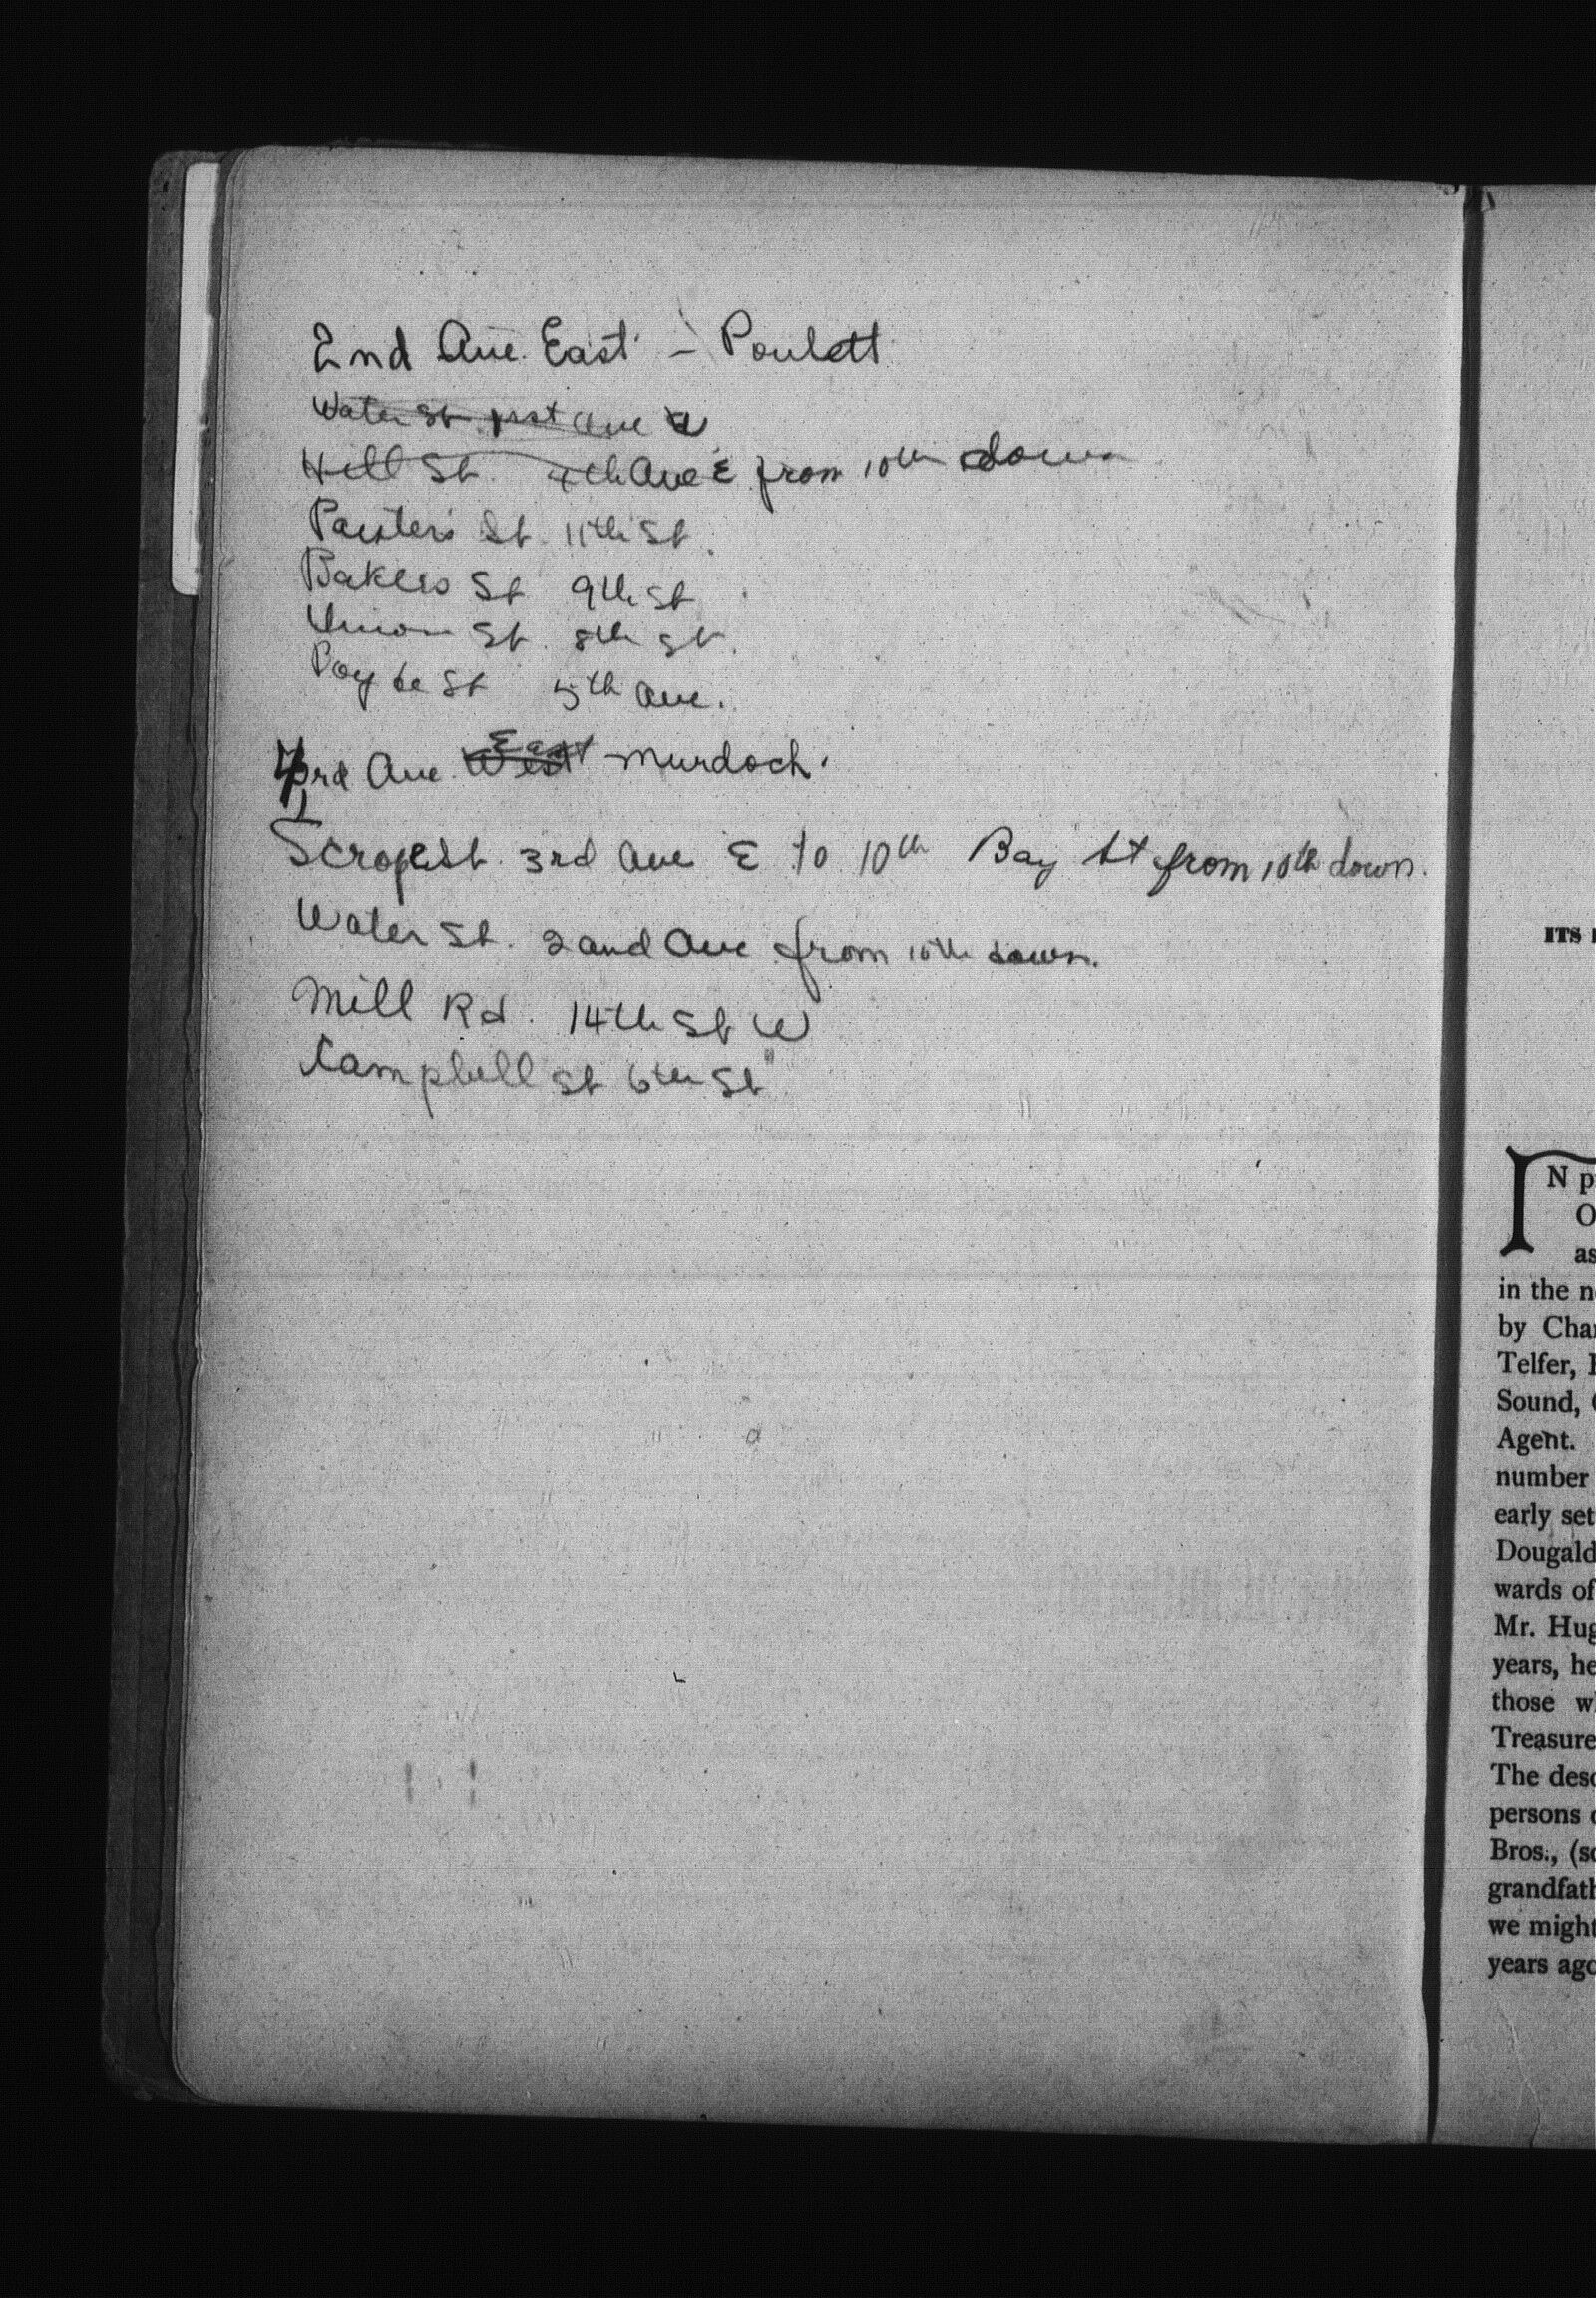 2nd Ave. East - Poulett
Water St. first Ave W
Hill St. 4th Ave E from 10th down
St. 11th St.
Bakers St 9th St
Union St. 8th St.
St 5th Ave.
rd Ave. West East - Murdoch.
Scrope St. 3rd Ave E to 10th Bay St from 10th down.
Water St. 2and Ave from 10th down.
Mill Rd. 14th St W
Campbell St 6th St
ITS
IN p
O
as
in the n
by Char
Telfer,
Sound,
Agent.
number
early set
Dougald
wards of
Mr. Hug
years, he
those w
Treasure
The desc
persons
Bros., (so
grandfath
we might
years ago